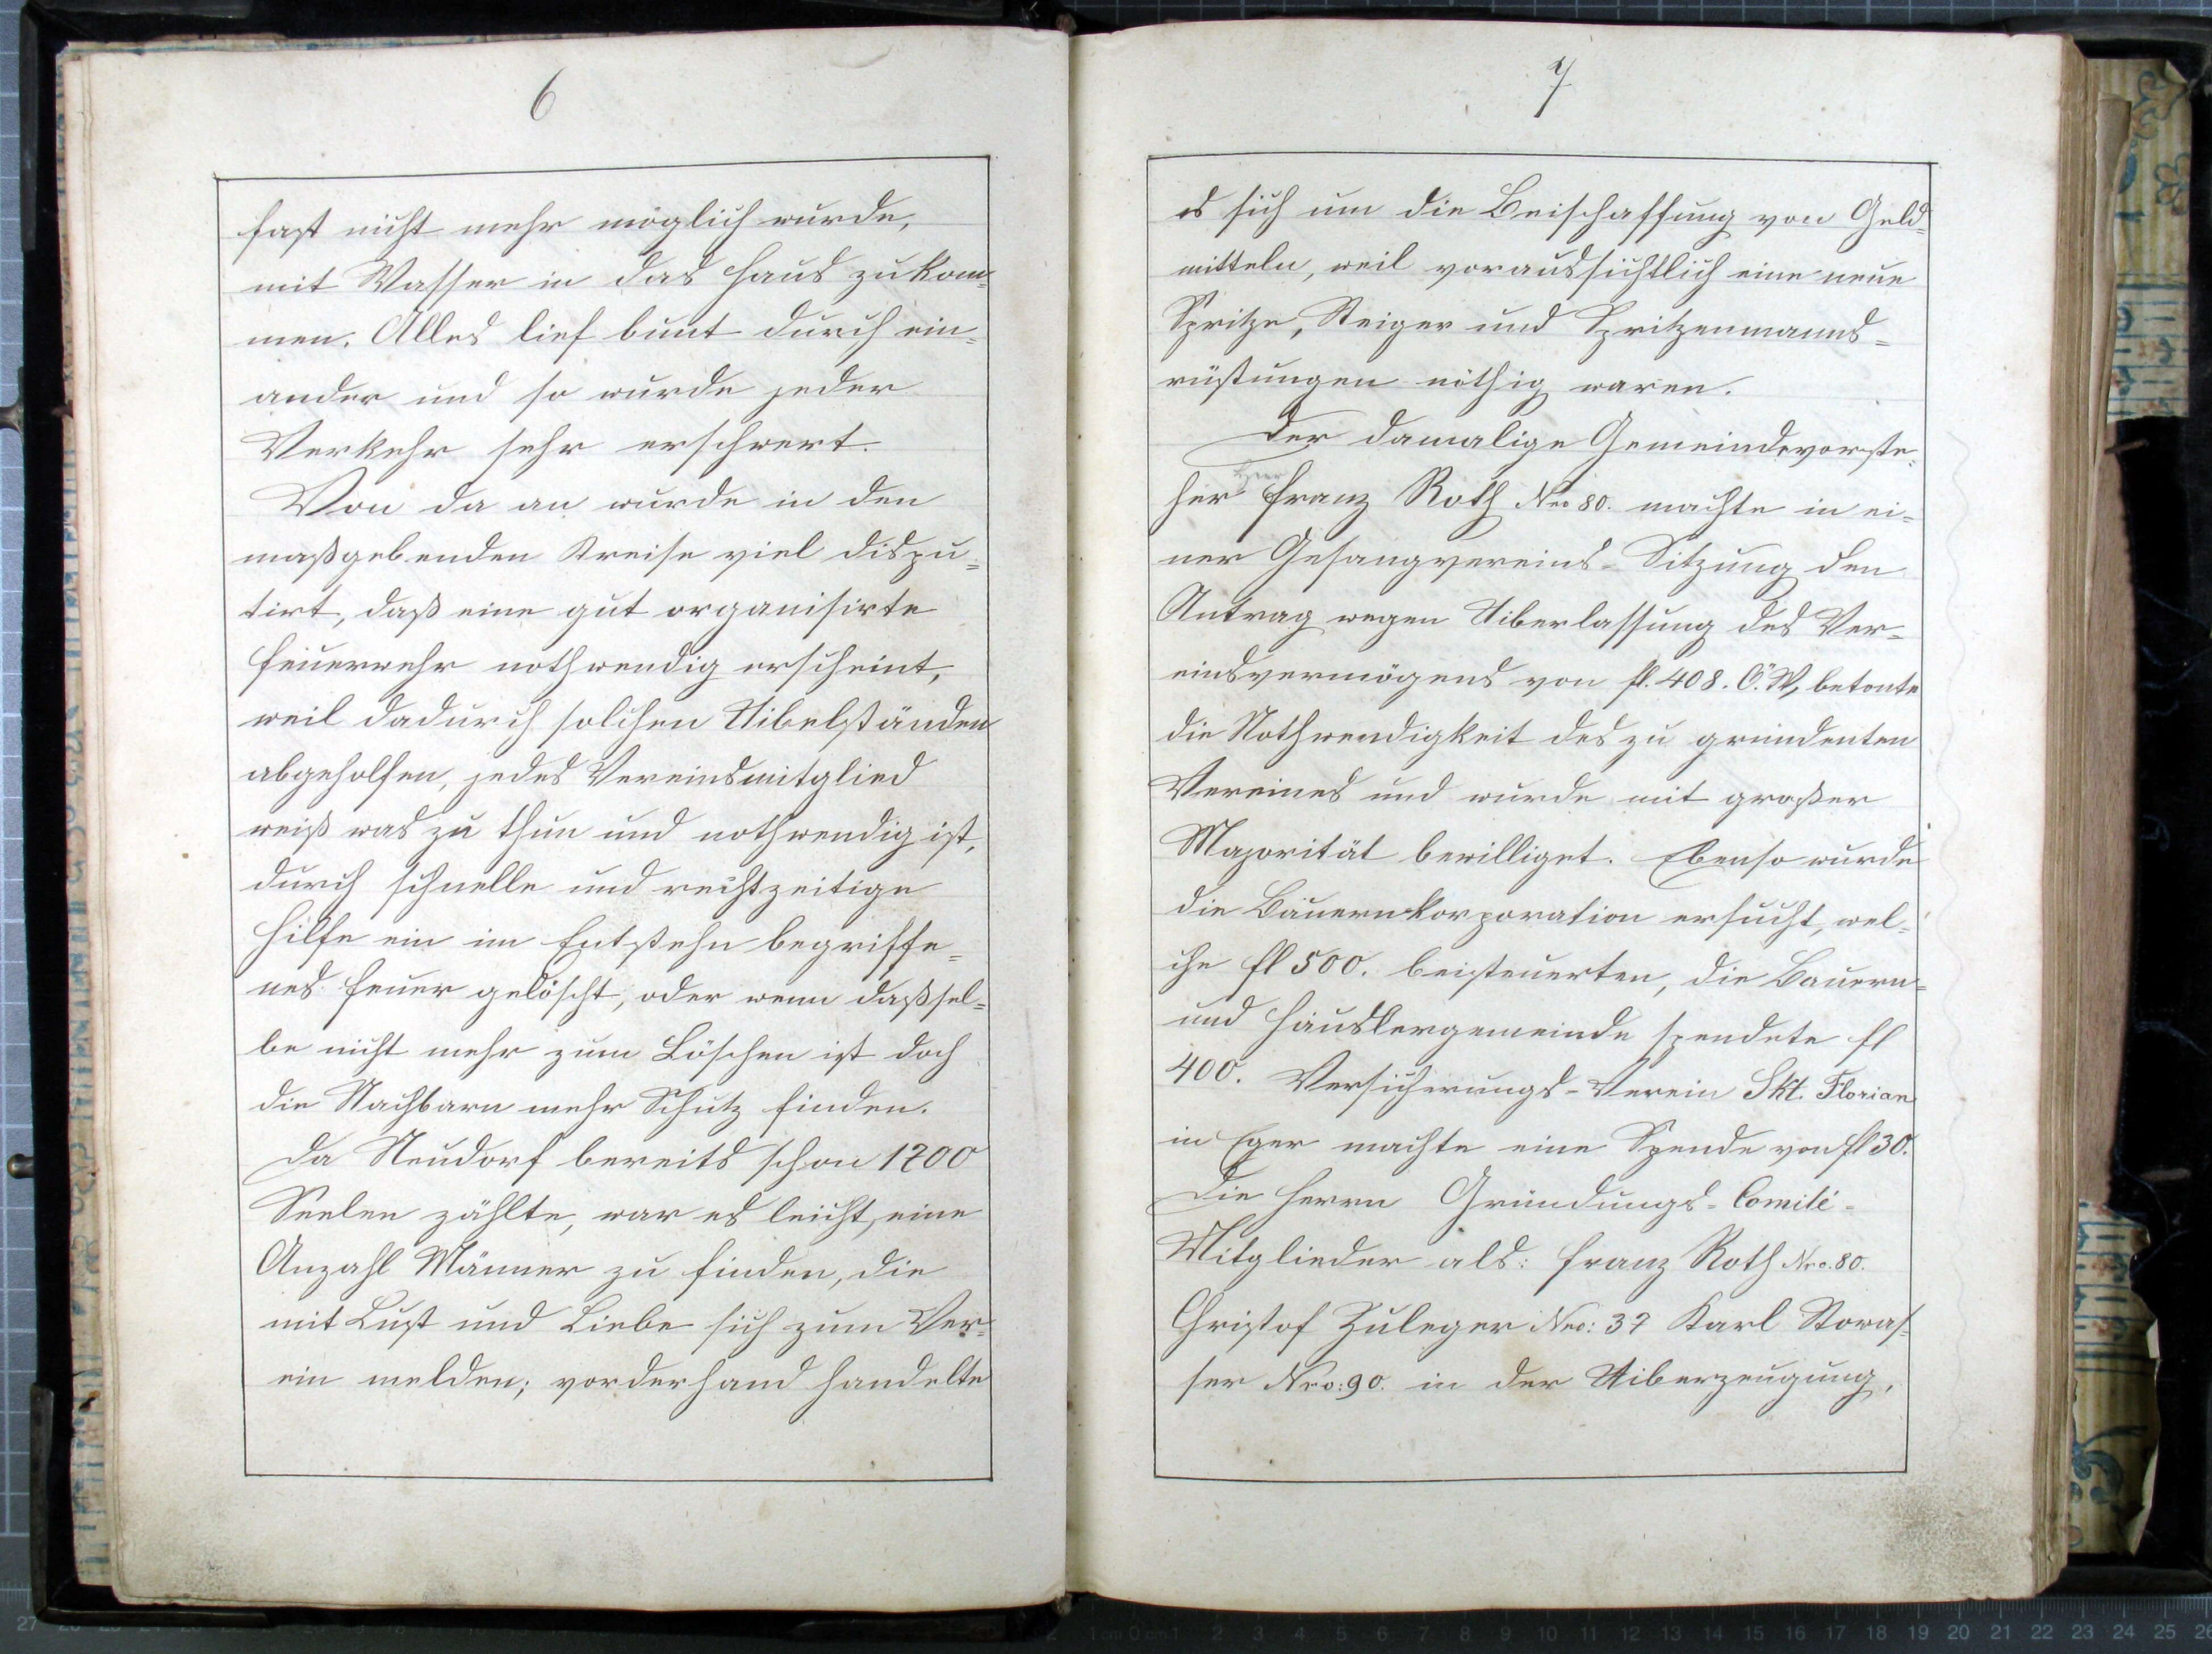 6
fast nicht mehr möglich wurde,
mit Wasser in das Haus zu kom=
men. Alles lief bunt durch ein=
ander und so wurde jeder
Verkehr sehr erschwert.
Von da an wurde in den
maßgebenden Kreise viel dispu=
tirt, daß eine gut organisirte
Feuerwehr nothwendig erscheint,
weil dadurch solchen Uibelständen
abgeholfen, jedes Vereinsmitglied
weiß was zu thun und nothwendig ist,
durch schnelle und rechtzeitige
Hilfe ein im Entstehn begriffe=
nes Feuer gelöscht, oder wenn daßsel=
be nicht mehr zum Löschen ist doch
die Nachbarn mehr Schutz finden.
Da Neudorf bereits schon 1200
Seelen zählte, war es leicht, eine
Anzahl Männer zu finden, die
mit Lust und Liebe sich zum Ver=
ein melden; vorderhand handelte
7
es sich um die Beischaffung von Geld=
mitteln, weil voraussichtlich eine neue
Spritze, Steiger und Spritzenmanns=
rüstungen nöthig waren.
Der damalige Gemeindevorste=
her Herr Franz Roth Nro 80. machte in ei=
ner Gesangvereins=Sitzung den
Antrag wegen Uiberlassung des Ver=
einsvermögens von fl. 408. Ö. W, betonte
die Nothwendigkeit des zu gründenten
Vereines und wurde mit großer
Majorität bewilliget. Ebenso wurde
die Bauernkorporation ersucht, wel=
che fl 500. beisteuerten, die Bauern=
und Häuslergemeinde spendete fl
400. Versicherungs=Verein Skt. Florian
in Eger machte eine Spende von fl 30.
Die Herrn Gründungs=Comité=
Mitglieder als: Franz Roth Nro. 80.
Christof Zuleger Nro: 37 Karl Stowas=
ser Nro: 90. in der Uiberzeugung,